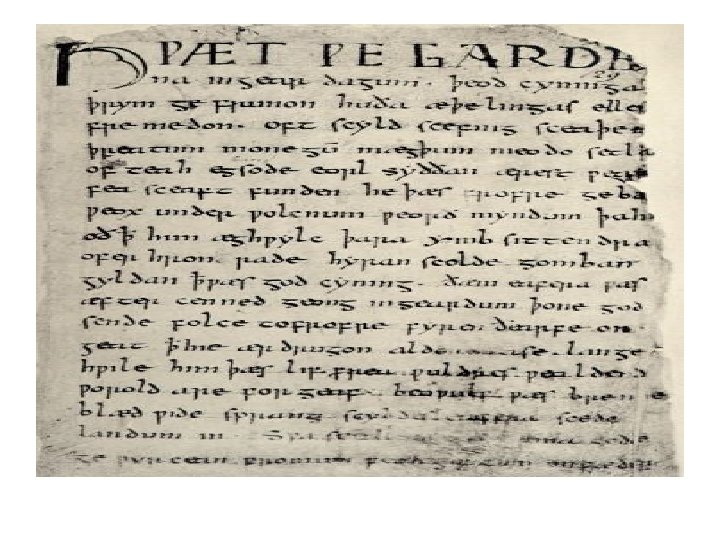 HǷÆT ǷE GARDE
na ingear dagum. þeod cyninga
þrym ge frunon huða æþelingas elle
fre medon. oft scyld scefing sceaþe
þreatum monegū mægþum meodo setla
of teah egsode eorl syððan ærest ƿear
fea sceaft funden he þæs frofre geba
ƿeox under ƿolcnum ƿeorð myndum þah
oðꝥ him æghƿylc þara ymb sittendra
ofer hron rade hyran scolde gomban
gyldan ꝥ ƿæs god cyning. ðæm eafera ƿæs
æfter cenned geong ingeardum þone god
sende folce tofrofre fyren ðearfe on
geat ꝥ hie ær drugon aldor ase. lange
hƿile him þæs lif frea ƿuldres ƿealdend
ƿorold are for geaf. beoƿulf ƿæs breme
blæd ƿide sprang scyldes eafera scede
landum in. Sƿa sceal guma gode
ge ƿyrcean fromum feoh giftum